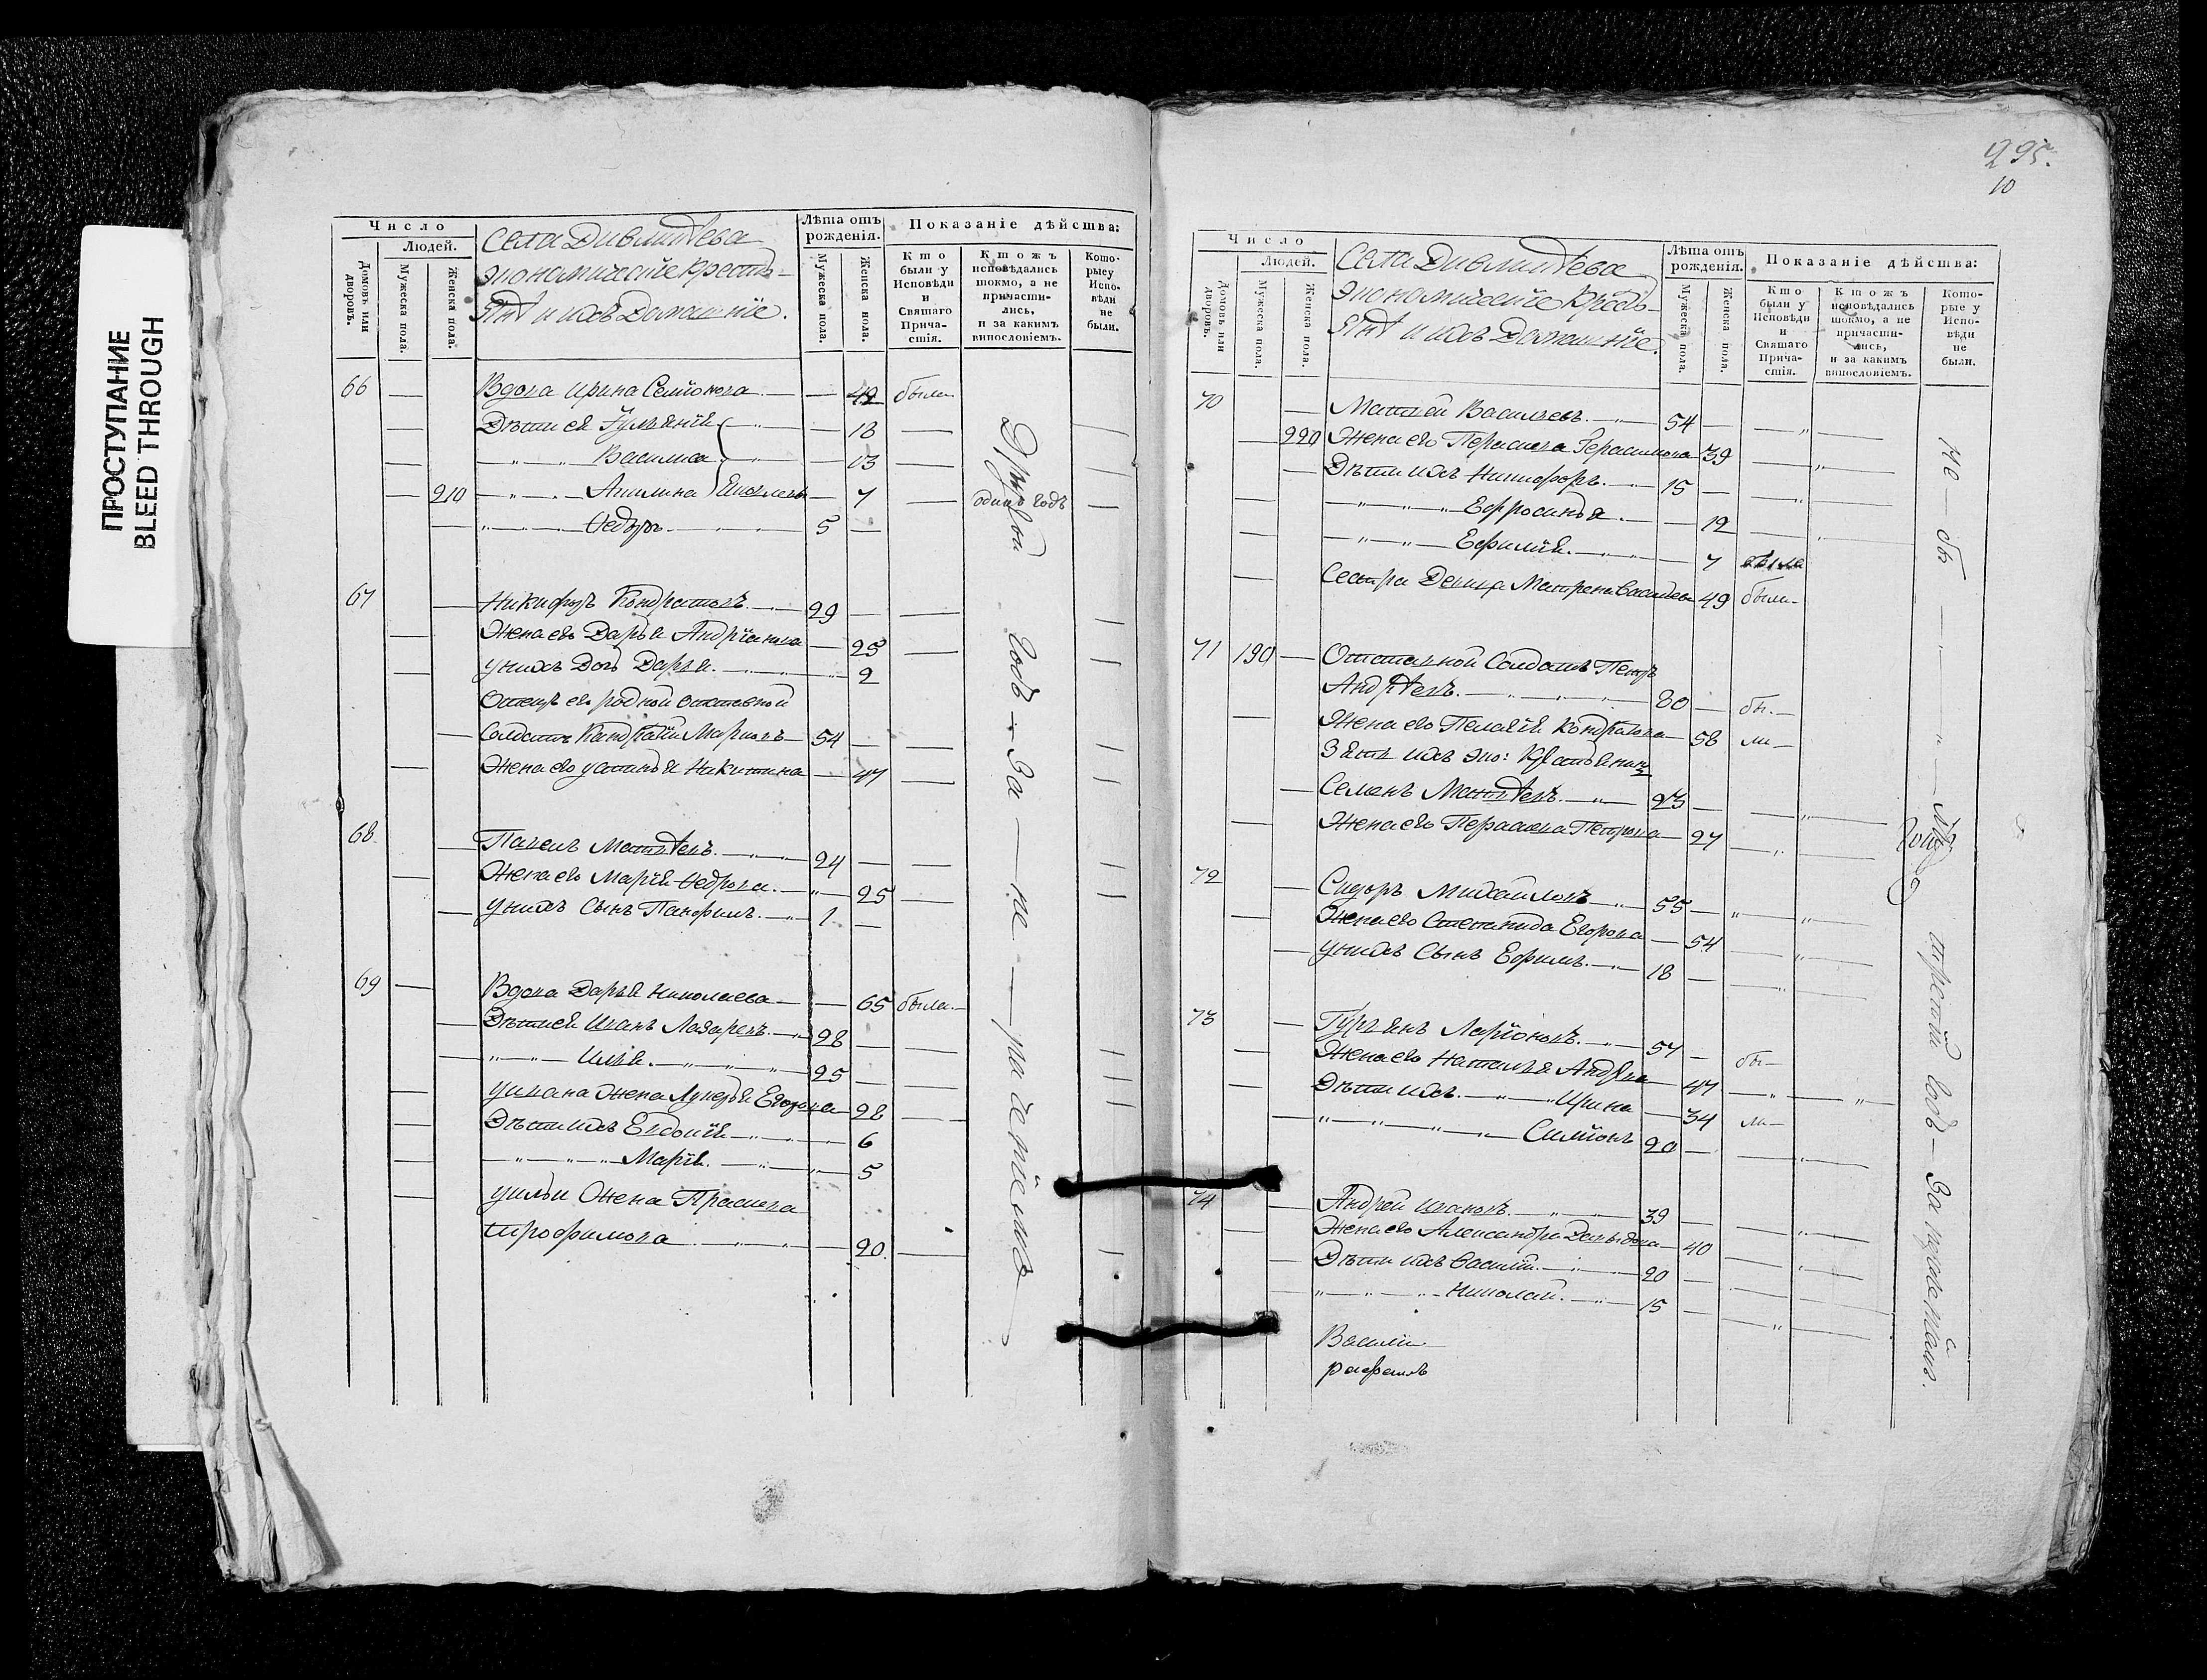 ПРОСТУПАНИЕ
BLEED THROUGH
Число
Людей.
Домовъ или дворовъ.
Мужеска пола.
Женска пола.
Села Дивлитѣева
экономическіе кресть-
янѣ и ихъ Домашніе.
Лѣта отъ рожденія.
Мужеска пола.
Женска пола.
Показаніе дѣйства:
Кто были у Исповѣди и Святаго Прича-стія.
Ктожъ исповѣдались токмо, а не причасти-лись, и за какимъ винословіемъ.
Кото-рыеу Испо-вѣди не были.
66 Вдова Ирина Семіонова 42 были
Дѣти ея Гулянія 18
Василиса 13
210 Акилина Яковлевы 7 одинъ годъ
Ѳедоръ 5
67 Никифоръ Кондратовъ 29
Жена его Дарья Андріанова 25
у нихъ Дочь Дарья 2
Отецъ его родной отставной
Солдатъ Кандратій Марковъ 54
Жена его устинья Никитина 47
68 Павелъ Матвѣевъ 24
Жена его Марія Ѳедрова 25
у нихъ Сынъ Панфилъ 1
69 Вдова Дарья Николаева 65 была
Дѣти ея Иванъ Лазаревъ 28
Илья 25
у ивана Жена Лукерья Егорова 28
Дѣти ихъ Евдокія 6
Марія 5
у ильи Жена Прасковa
трофимова 20
Другой годъ За не раденіемъ
295.
10
Число
Людей.
Домовъ или дворовъ.
Мужеска пола.
Женска пола.
Села Дивлитѣева
экономическіе кресть-
янѣ и ихъ Домашніе.
Лѣта отъ рожденія.
Мужеска пола.
Женска пола.
Показаніе дѣйства:
Кто были у Исповѣди и Святаго Прича-стія.
Ктожъ исповѣдались токмо, а не причасти-лись, и за какимъ винословіемъ.
Кото-рые у Испо-вѣди не были.
70 Матвей Васильевъ 54
220 Жена его Перасковa Герасимова 39
Дѣти ихъ Никифоръ 15
Ефросинья 12
Ефимія 7 была
Сестра Девица Матрена Васильева 49 были
71 190 Отставной Солдатъ Петръ
Андрѣевъ 80 бы
Жена его Пелагія Кондратова 58 ли
Зять ихъ эко: Крестьянинъ
Семенъ Матвѣевъ 23
Жена его Перасковa Петрова 27
72 Сидоръ Михайловъ 55
Жена его Степанида Егорова 54
у нихъ Сынъ Ефимъ 18
73 Гурьянъ Ларіоновъ 54 бы
Жена его Наталья Андрева 47
Дѣти ихъ Ирина 34 ли
Симіонъ 20
74 Андрей Ивановъ 39
Жена его Александра Давыдова 40
Дѣти ихъ Василій 20
Николай 15
Василій
Не бы третій годъ За нерадѣніем